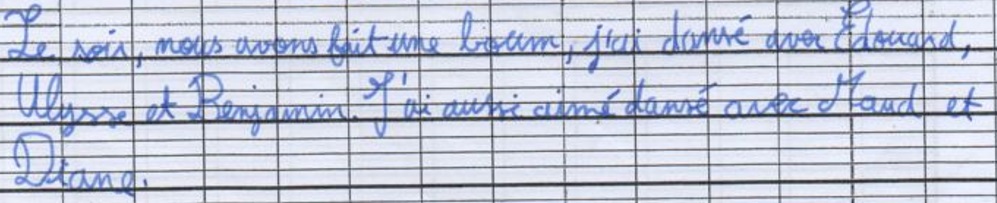 Le soir, nous avons fait une boum, j'ai dansé avec Édouard,
Ulysse et Benjamin. J'ai aussi aimé dansé avec Maud et
Diane.